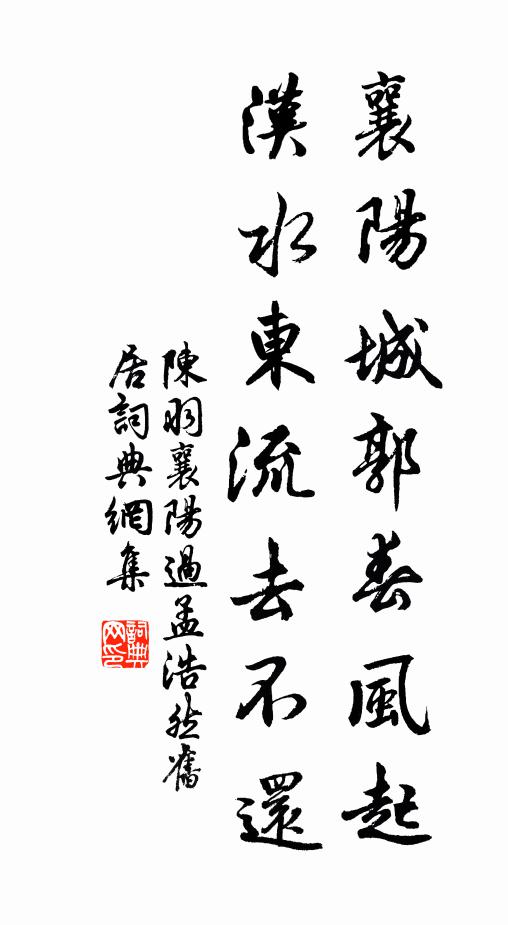 襄陽城郭春風起
漢水東流去不還
陳羽襄陽過孟浩然舊
居詞典網集
詞典
网印